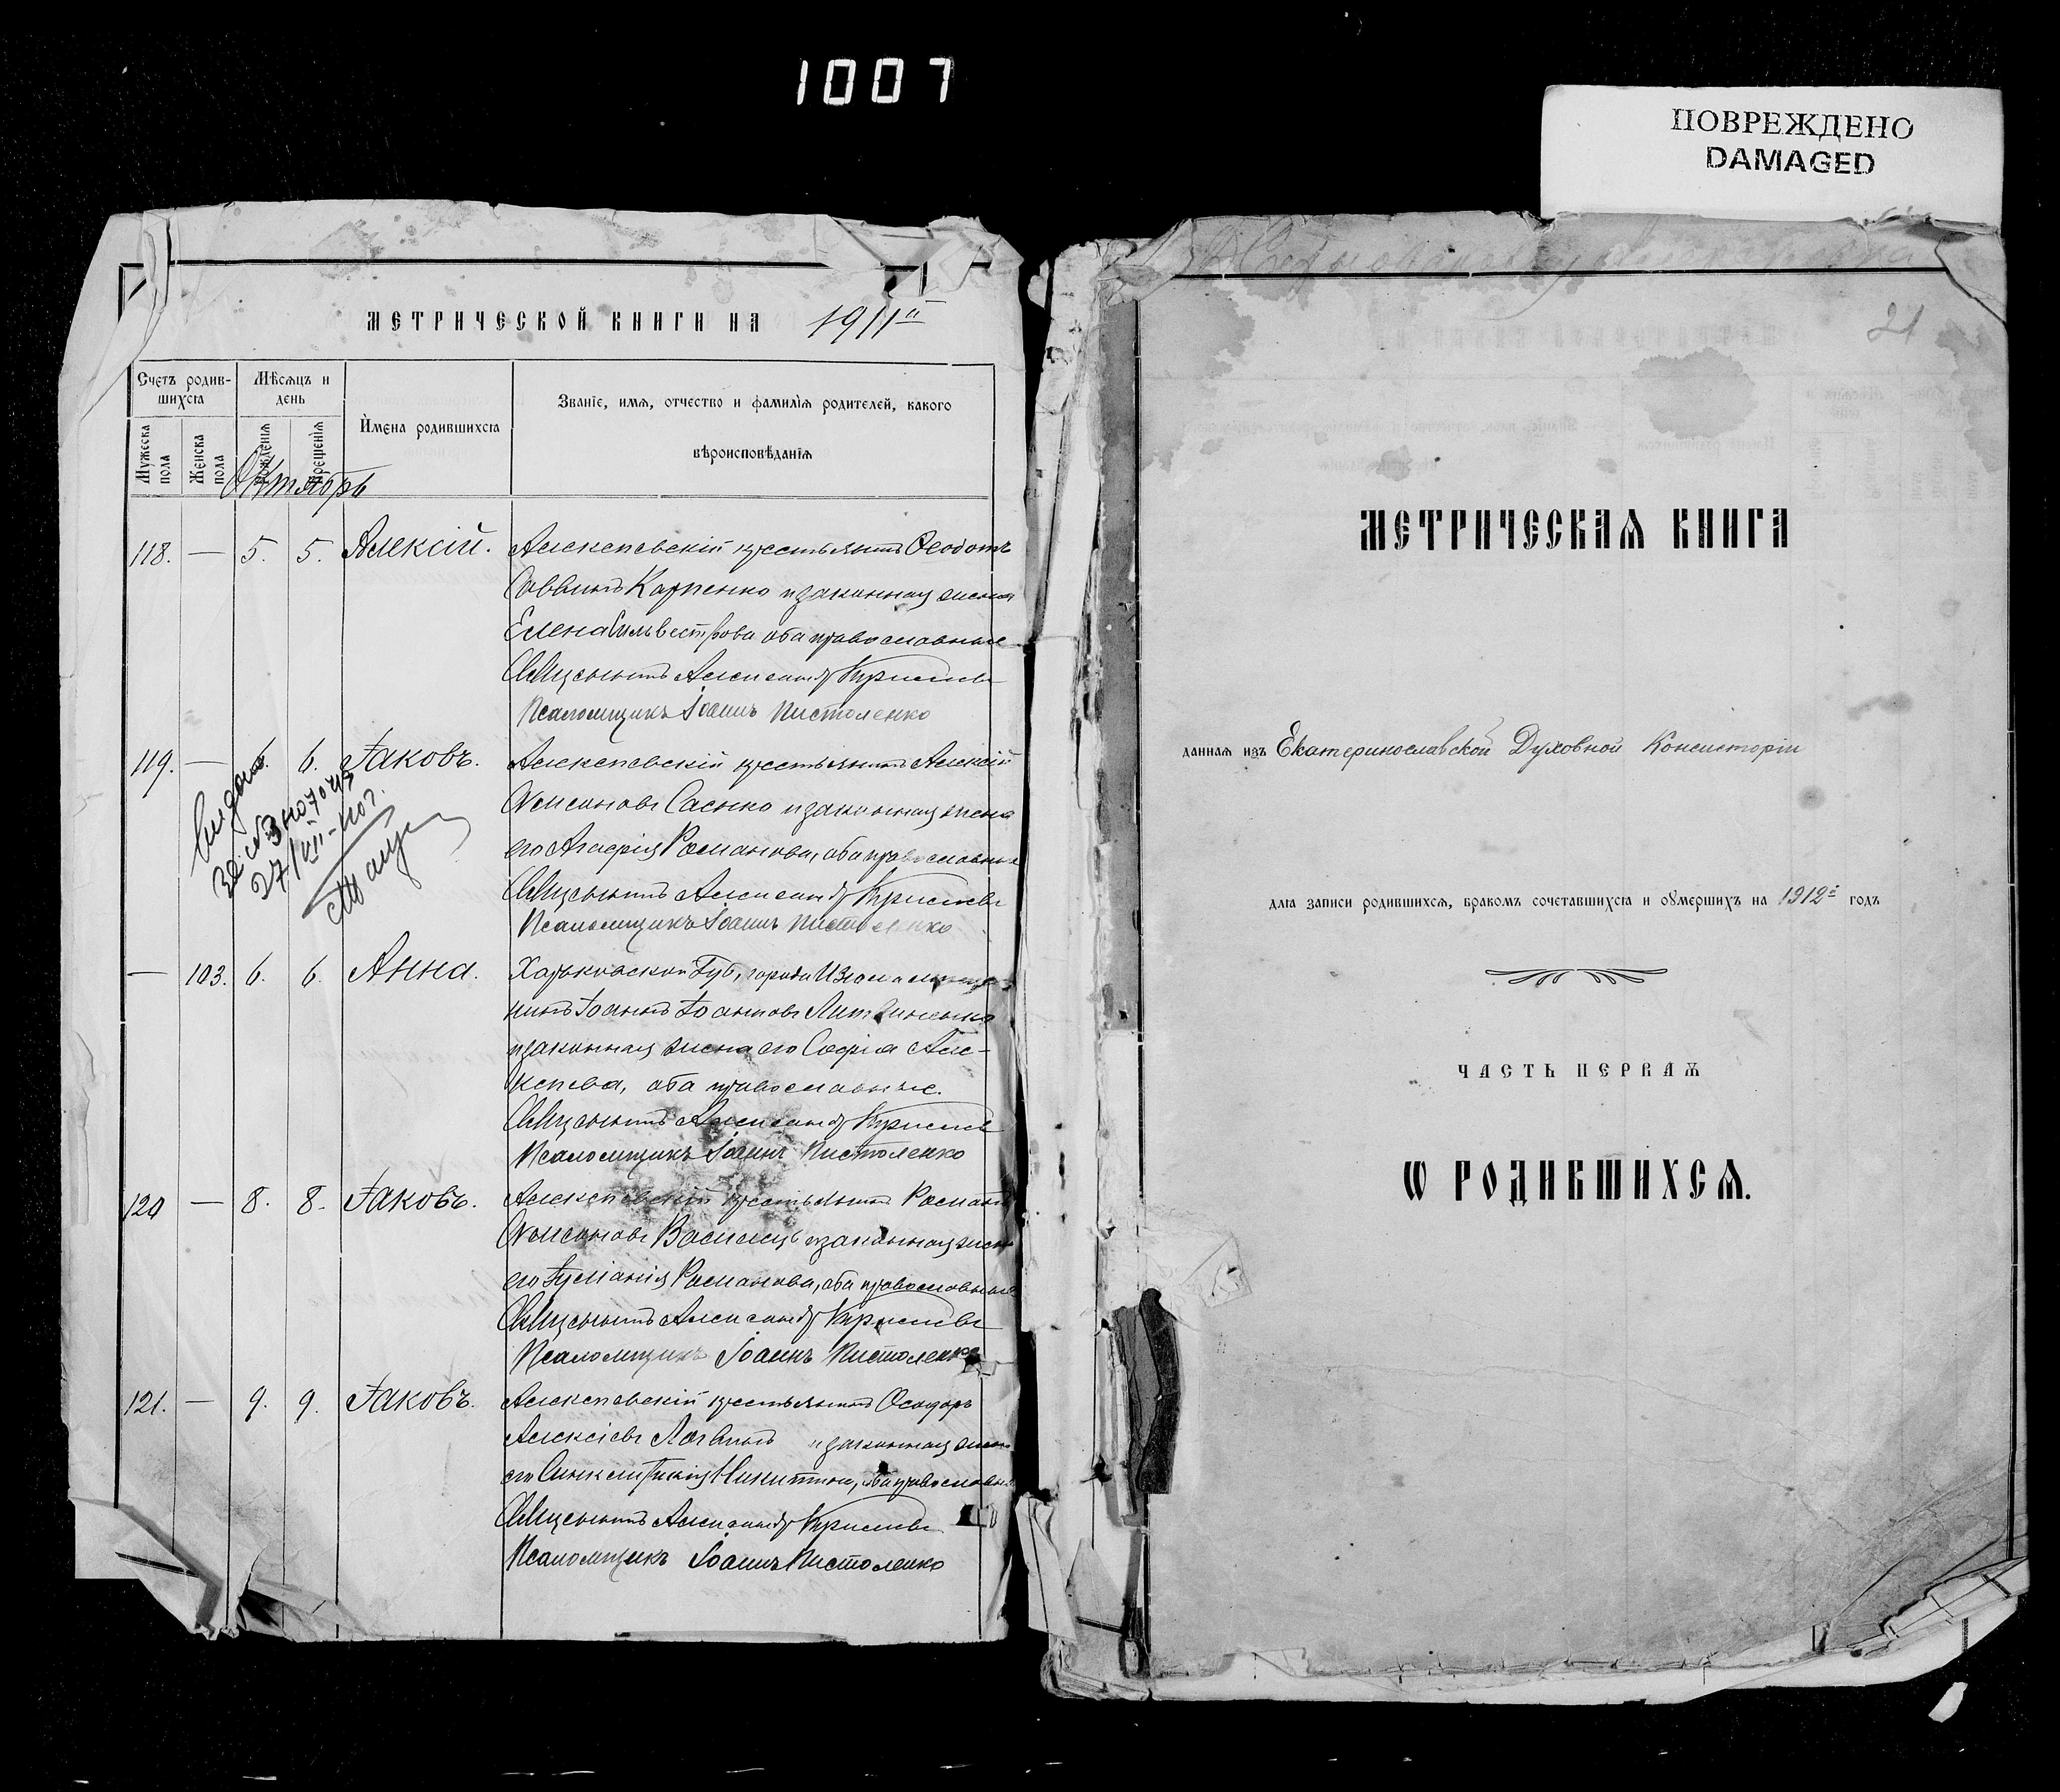 1007
ПОВРЕЖДЕНО
DAMAGED
МЕТРИЧЕСКОЙ КНИГИ НА 1911й
Счетъ родив-
шихсѧ
Мѣсѧцъ и
день
Мужеска
пола
Женска
пола
Рожденїѧ
Крещенїѧ
Имена родившихсѧ
Званїе, имѧ, отчество и фамилїѧ родителей, какого
вѣроисповѣданїѧ
Октябрь
118. — 5. 5. Алексій.
Алексѣевскій крестьянинъ Ѳеодотъ
Саввинъ Карпенко и законная жена
Елена Сильвестрова оба православные
Священникъ Александръ
Псаломщикъ Іоаннъ Пистоленко
119. — 6. 6. Іаковъ.
Алексѣевскій крестьянинъ Алексій
Сасько и законная жена
его Агафія Романова, оба православные
Священникъ Александръ
Псаломщикъ Іоаннъ Пистоленко
27/VII-
— 103. 6. 6. Анна.
Харьковской Губ, города Изюма мѣща-
нинъ Іоаннъ Іоанновъ Литвиненко
и законная жена его Софія Але-
ксѣева, оба православные.
Священникъ Александръ
Псаломщикъ Іоаннъ Пистоленко
120 — 8. 8. Іаковъ.
Алексѣевскій крестьянинъ Романъ
и законная жена
его Іуліанія Романова, оба православные
Священникъ Александръ
Псаломщикъ Іоаннъ Пистоленко
121. — 9. 9. Іаковъ.
Алексѣевскій крестьянинъ Ѳеодоръ
Алексіевъ и законная жена
его Синклитикія Никитина, оба православные
Священникъ Александръ
Псаломщикъ Іоаннъ Пистоленко
21
МЕТРИЧЕСКАѦ КНИГА
даннаѧ изъ Екатеринославской Духовной Консисторіи
длѧ записи родившихсѧ, бракомъ сочетавшихсѧ и ѹмершихъ на 1912й годъ
ЧАСТЬ ПЕРВАѦ
Ѡ РОДИВШИХСѦ.